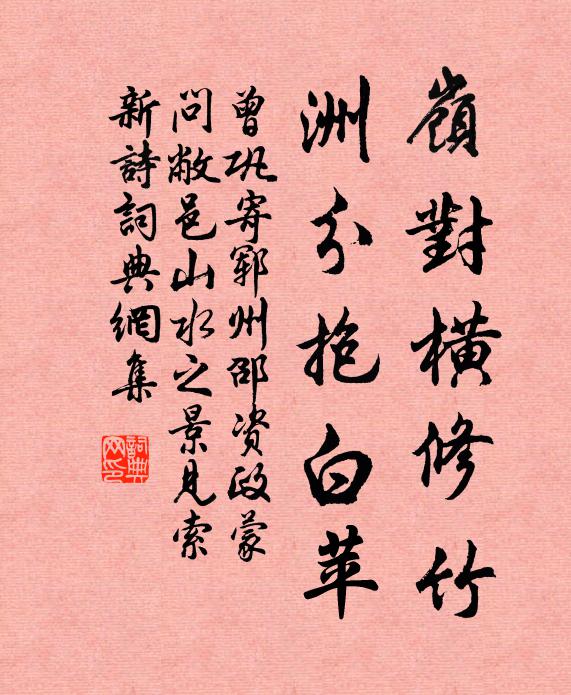 嶺對橫修竹
洲分抱白苹
曾巩寄鄆州邵资政蒙
问敝邑山水之景見索
新詩詞典網集
詞典网印